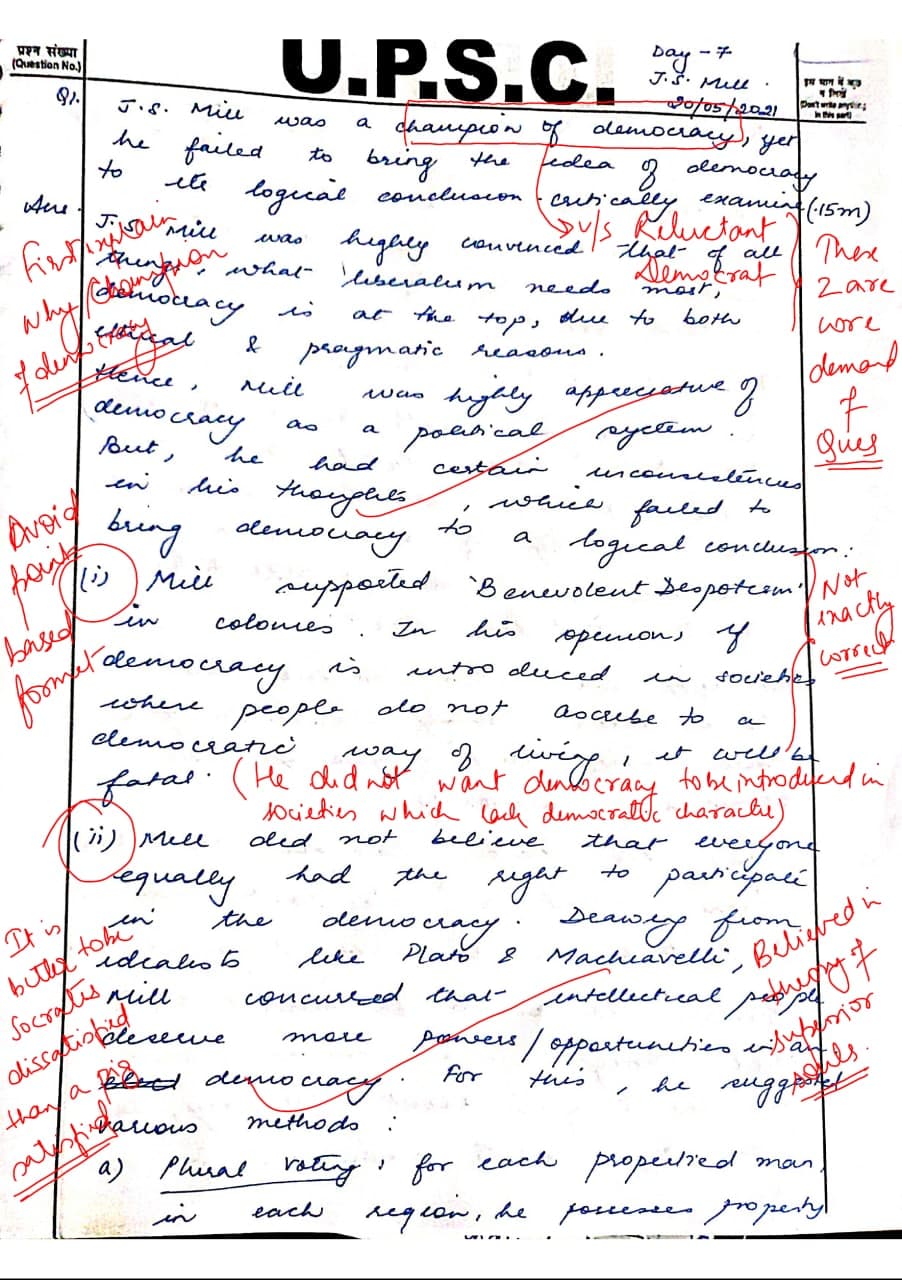 प्रश्न संख्या
(Question No.)
U.P.S.C.
Day - 7
J.S. Mill.
20/05/2021
इस भाग में कुछ
न लिखें
(Don't write anything
in this part)
Q1. J.S. Mill was a champion of democracy, yet
he failed to bring the idea of democracy
to its logical conclusion. critically examine (15m)
v/s Reluctant
Democrat
There
2 are
core
demand
of
Ques
First explain
why Champion
of democracy
Ans. J.S. Mill was highly convinced that of all
things, what liberalism needs most,
democracy is at the top, due to both
ethical & pragmatic reasons.
Hence, Mill was highly appreciative of
democracy as a political system.
But, he had certain inconsistencies
in his thoughts, which failed to
bring democracy to a logical conclusion:
Avoid
point
based
format
(i) Mill supported 'Benevolent Despotism'
in colonies. In his opinion, if
democracy is introduced in societies
where people do not ascribe to a
democratic way of living, it will be
fatal. (He did not want democracy to be introduced in
societies which lack democratic character)
Not
exactly
correct
(ii) Mill did not believe that everyone
equally had the right to participate
in the democracy. Drawing from
idealists like Plato & Machiavelli,
Mill concurred that intellectual people
deserve more powers/opportunities in a
democracy. For this, he suggested
various methods:
It is
better to be
Socrates
dissatisfied
than a pig
satisfied
Believed in
theory of
superior
souls.
a) Plural voting: for each propertied man,
in each region, he possesses property